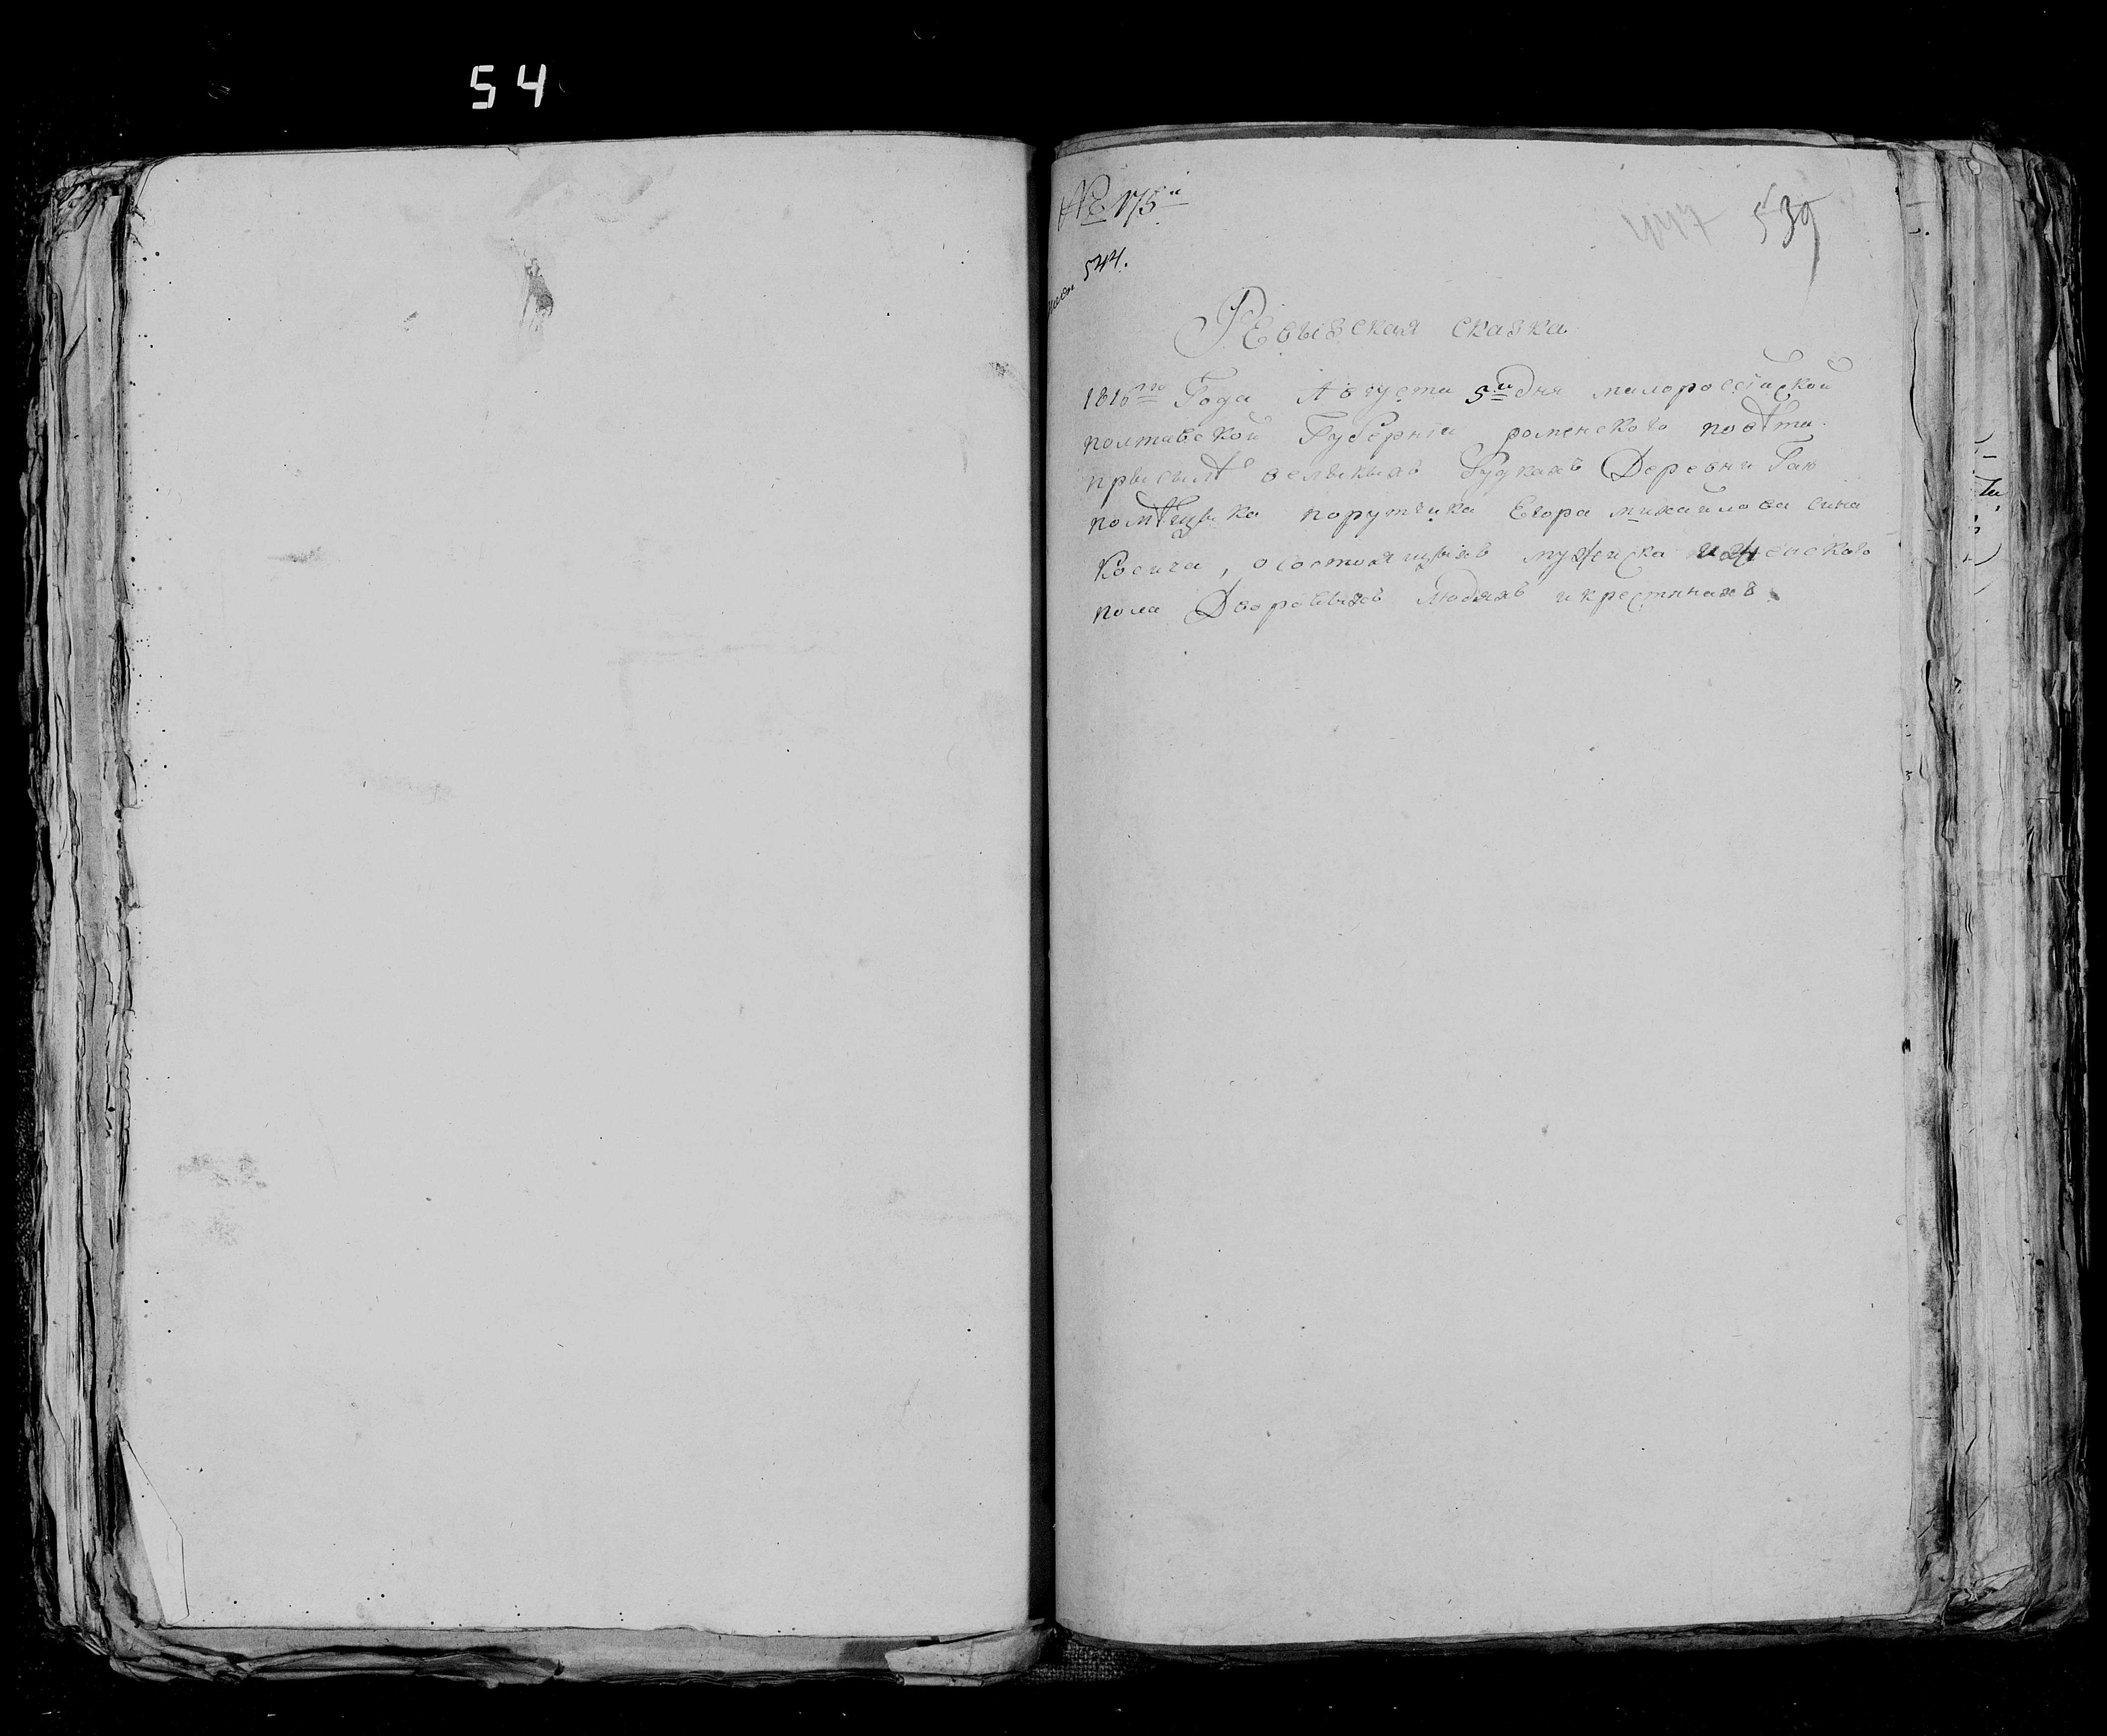 54
№ 175й
539
544.
Ревызская сказка
1816го Года Августа 5й дня малороссійской
полтавской Губерніи роменского повѣта
прысѣлѣ велыкыхъ Будкахъ Деревни Гаю
помѣщыка порутчика Егора михайлова сина
Косича, осостоящыхъ мужеска и женского
пола Дворовыхъ людяхъ икрестянахъ.